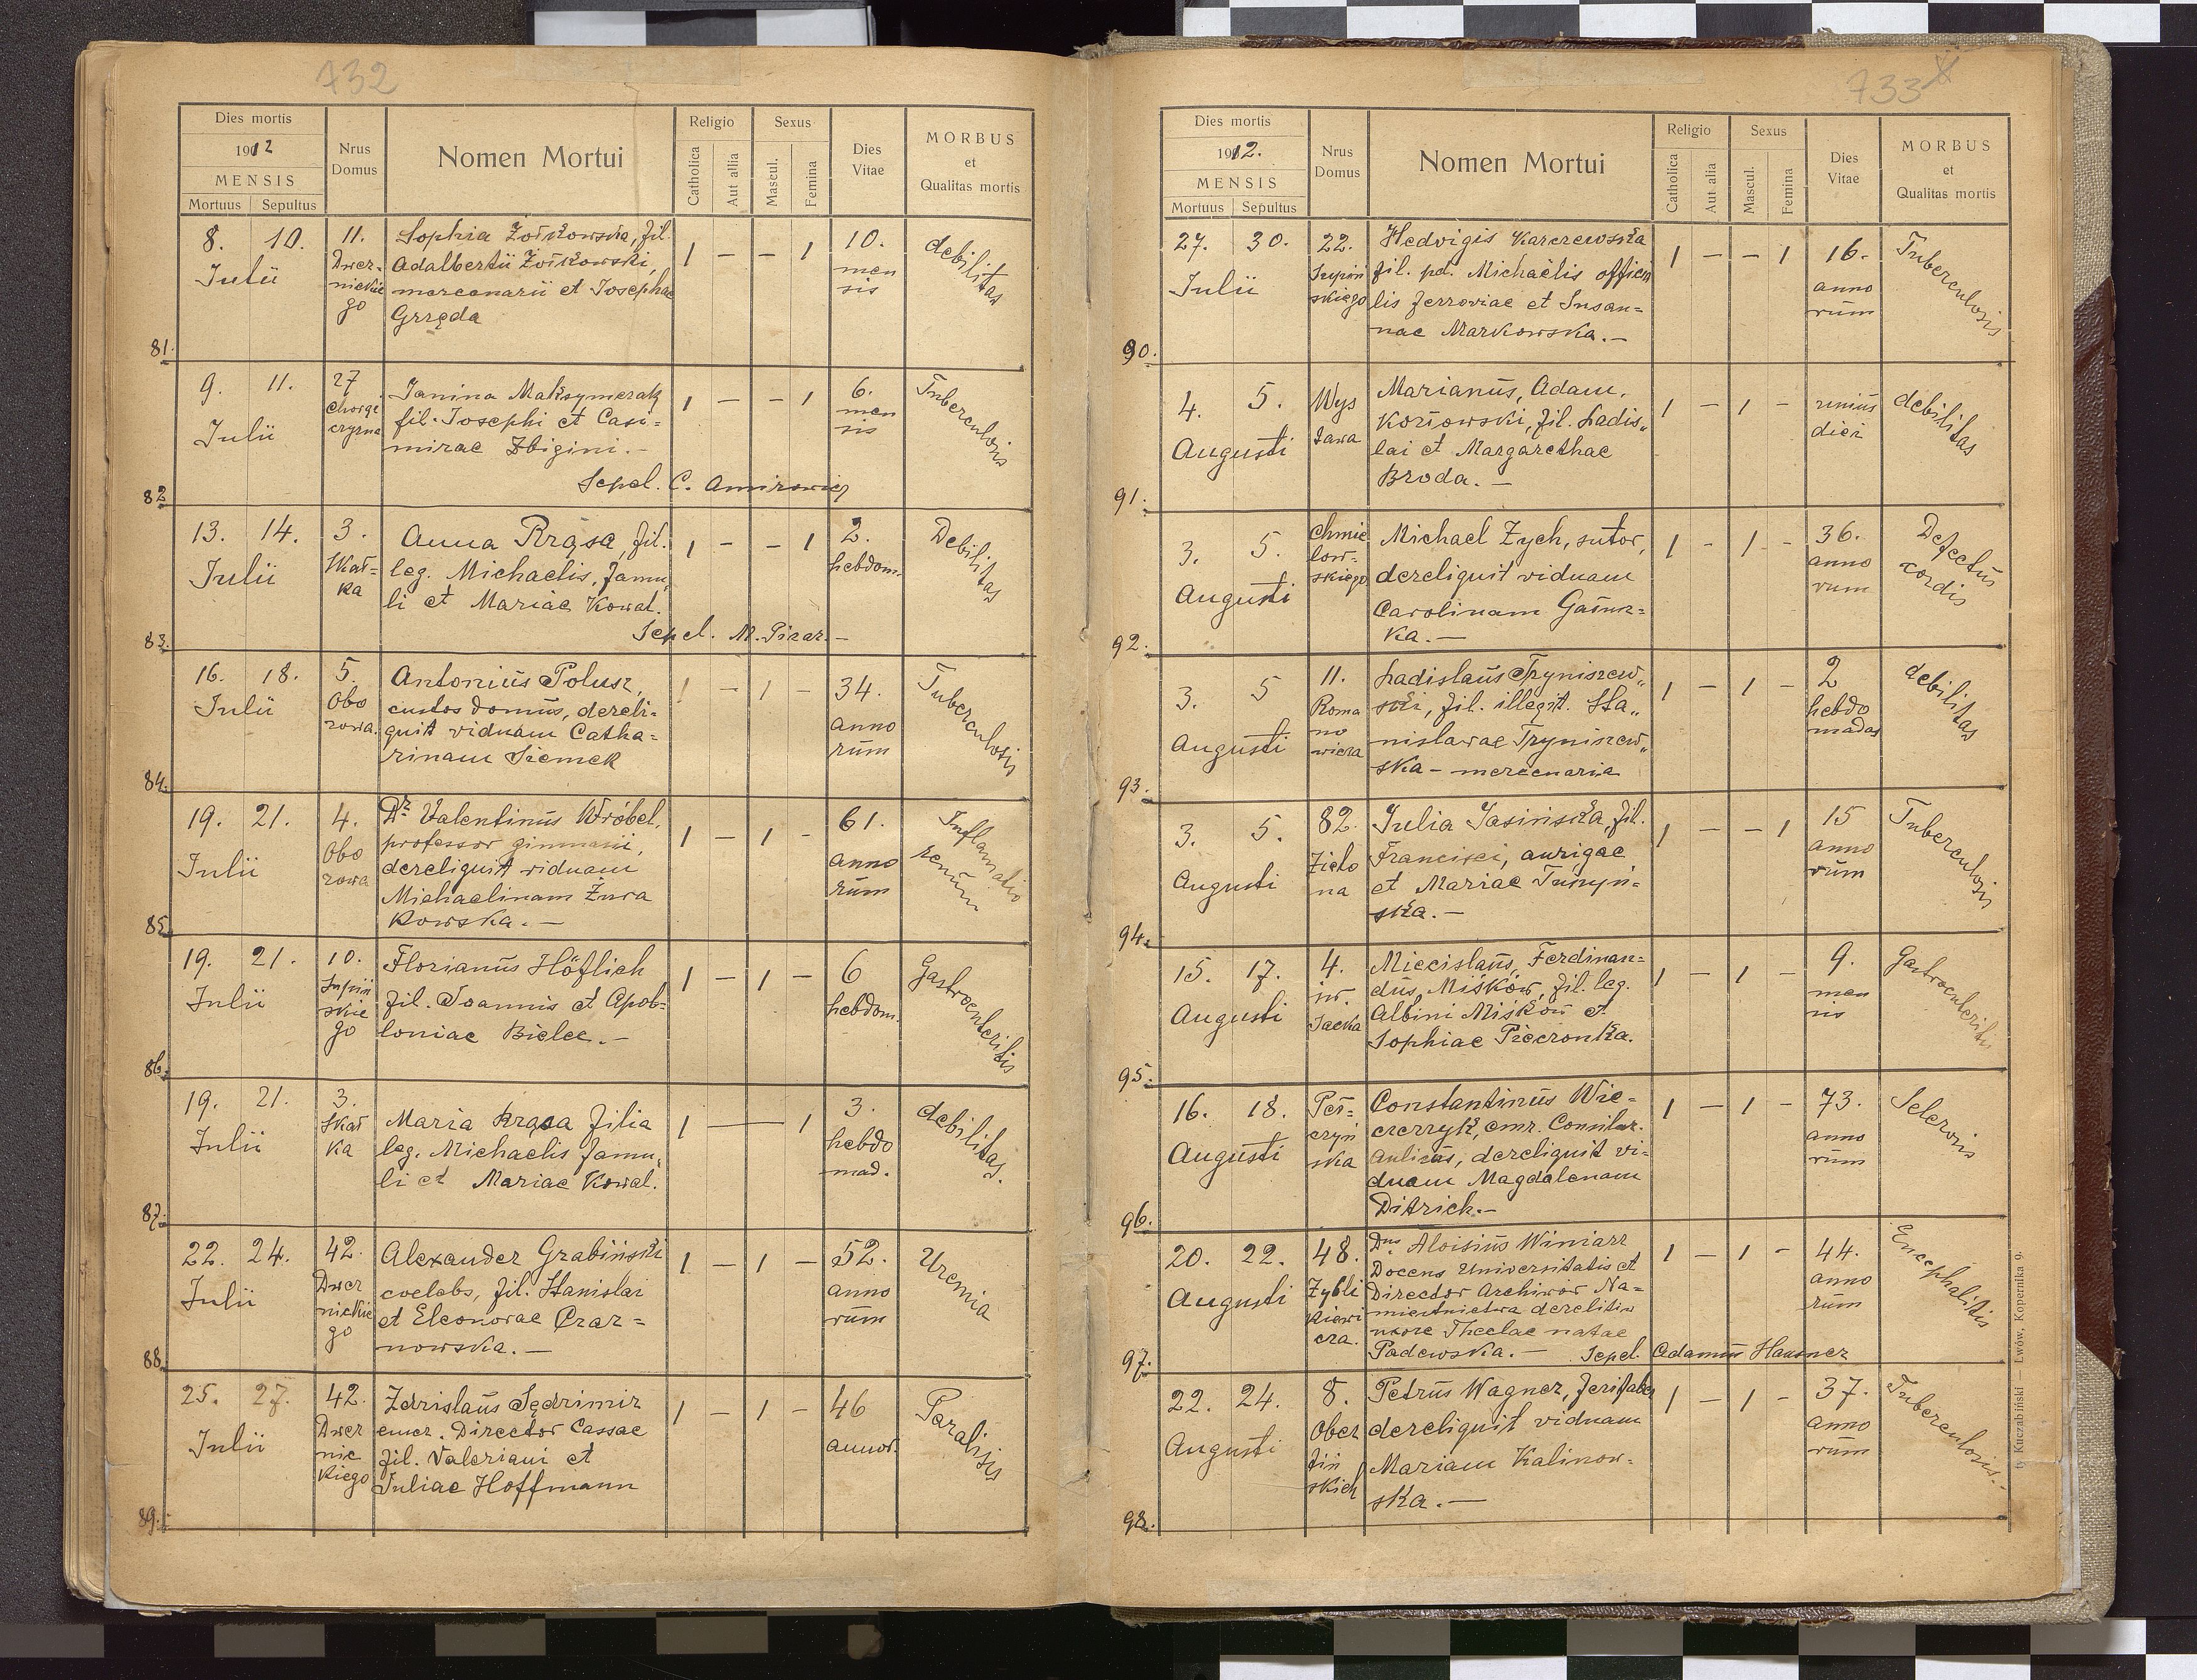 732
Dies mortis
1912
MENSIS
Mortuus Sepultus
Nrus Domus
Nomen Mortui
Religio
Catholica
Aut alia
Sexus
Mascul.
Femina
Dies Vitae
MORBUS
et
Qualitas mortis
81.
8. 10.
Julii
11.
Dwer-
nickie
go
Sophia Żółkowska, fil.
Adalbertii Żółkowski,
mercenarii et Josephae
Grzęda
1 — — 1
10.
men
sis
debilitas
82
9. 11.
Julii
27
Chorąż
czyzna
Janina Maksymczak
fil. Josephi et Casi=
mirae Zbigini.-
Sepel. C.
1 — — 1
6.
men
sis
Tuberculosis
83.
13. 14.
Julii
3.
Skał=
ka
Anna Rząsa, fil.
leg. Michaelis, famu,
li et Mariae Kowal.
Sepel. M. Pizar.—
1 - - 1
2.
hebdom.
Debilitas
84.
16. 18.
Julii
5.
Obo
zowa.
Antonius Polusz,
custos domus, dereli=
quit viduam Catha=
rinam Siemek
1 — 1 —
34.
anno
rum
Tuberculosis
85.
19. 21.
Julii
4.
Obo
zowa
Dr Valentinus Wróbel,
professor gimnasii,
dereliquit viduam
Michaelinam Żura
kowska.—
1 — 1 -
61.
anno
rum
Inflamatio
renum
86.
19. 21.
Julii
10.
Supiń
skie
go
Florianus Höflich
fil. Joannis et Apol=
loniae Bielec.—
1 — 1 —
6
hebdom.
Gastroenteritis
87.
19. 21.
Julii
3.
Skał
ka
Maria Rząsa filia
leg. Michaelis famu,
li et Mariae Kowal.
1 — 1
3.
hebdo
mad.
debilitas.
88.
22. 24.
Julii
42.
Dwer
nickie
go
Alexander Grabiński
coelebs, fil. Stanislai
et Eleonorae Czar=
nowska.—
1 — 1 —
52.
anno
rum
Uremia
89.
25. 27.
Julii
42.
Dwer
nic
kiego
Zdzislaus Sędzimir
emer. Director Cassae
fil. Valeriani et
Juliae Hoffmann
1 — 1 —
46
annor.
Paralisis
733
Dies mortis
1912.
MENSIS
Mortuus Sepultus
Nrus Domus
Nomen Mortui
Religio
Catholica
Aut alia
Sexus
Mascul.
Femina
Dies Vitae
MORBUS
et
Qualitas mortis
90.
27. 30.
Julii
22.
Supiń
skiego
Hedvigis Karczewska
fil. pd. Michaëlis officia
lis ferroviae et Susan=
nae Markowska.—
1 — — 1
16.
anno
rum
Tuberculosis
91.
4. 5.
Augusti
Wys
Marianus, Adam,
Kozłowski, fil. Ladis,,
lai et Margarethae
Broda.—
1 — 1 —
unius
diei
debilitas
92.
3. 5.
Augusti
Chmie
low-
skiego
Michael Zych, sutor,
dereliquit viduam
Carolinam
ka.—
1 - 1 -
36.
anno
rum
Defectus
cordis
93.
3. 5
Augusti
11.
Roma
no
wicza
Ladislaus Tryniszew,,
ski, fil. illegit. Sta,,
nislavae Tryniszew,,
ska - mercenaria
1 — 1 -
2
hebdo
madas
debilitas
94.
3. 5.
Augusti
82.
Zielo
na
Julia Jasińska, fil.
Francisci, aurigae
et Mariae Tuszyń=
ska.—
1 — — 1
15
anno
rum
Tuberculosis
95.
15. 17.
Augusti
4.
św.
Jacka
Miecislaus, Ferdinan=
dus, Miśków, fil. leg.
Albini Miśków et
Sophiae Pieczonka.
1 — 1 -
9.
men
sis
Gastroenteritis
96.
16. 18.
Augusti
Peł=
czyń
ska
Constantinus Wie=
czerzyk, emr. Consiliar.
Aulicus, dereliquit vi=
duam Magdalenam
Ditrich.—
1 — 1 -
73.
anno
rum
Sclerosis
97.
20. 22.
Augusti
48.
Zybli
kiewi
cza.
Dnus Aloisius Winiarz
Docens Universitatis et
Director Archiwów Na=
miestnictwa
uxore Theclae natae
Padewska.— Sepel. Adamus Hausner
1 — 1 -
44.
anno
rum
Encephalitis
98.
22. 24.
Augusti
8.
Ober
tyń
skich
Petrus Wagner,
dereliquit viduam
Mariam Kalinow-
ska.—
1 — 1 -
37.
anno
rum
Tuberculosis.-
Kuczabiński — Lwów, Kopernika 9.